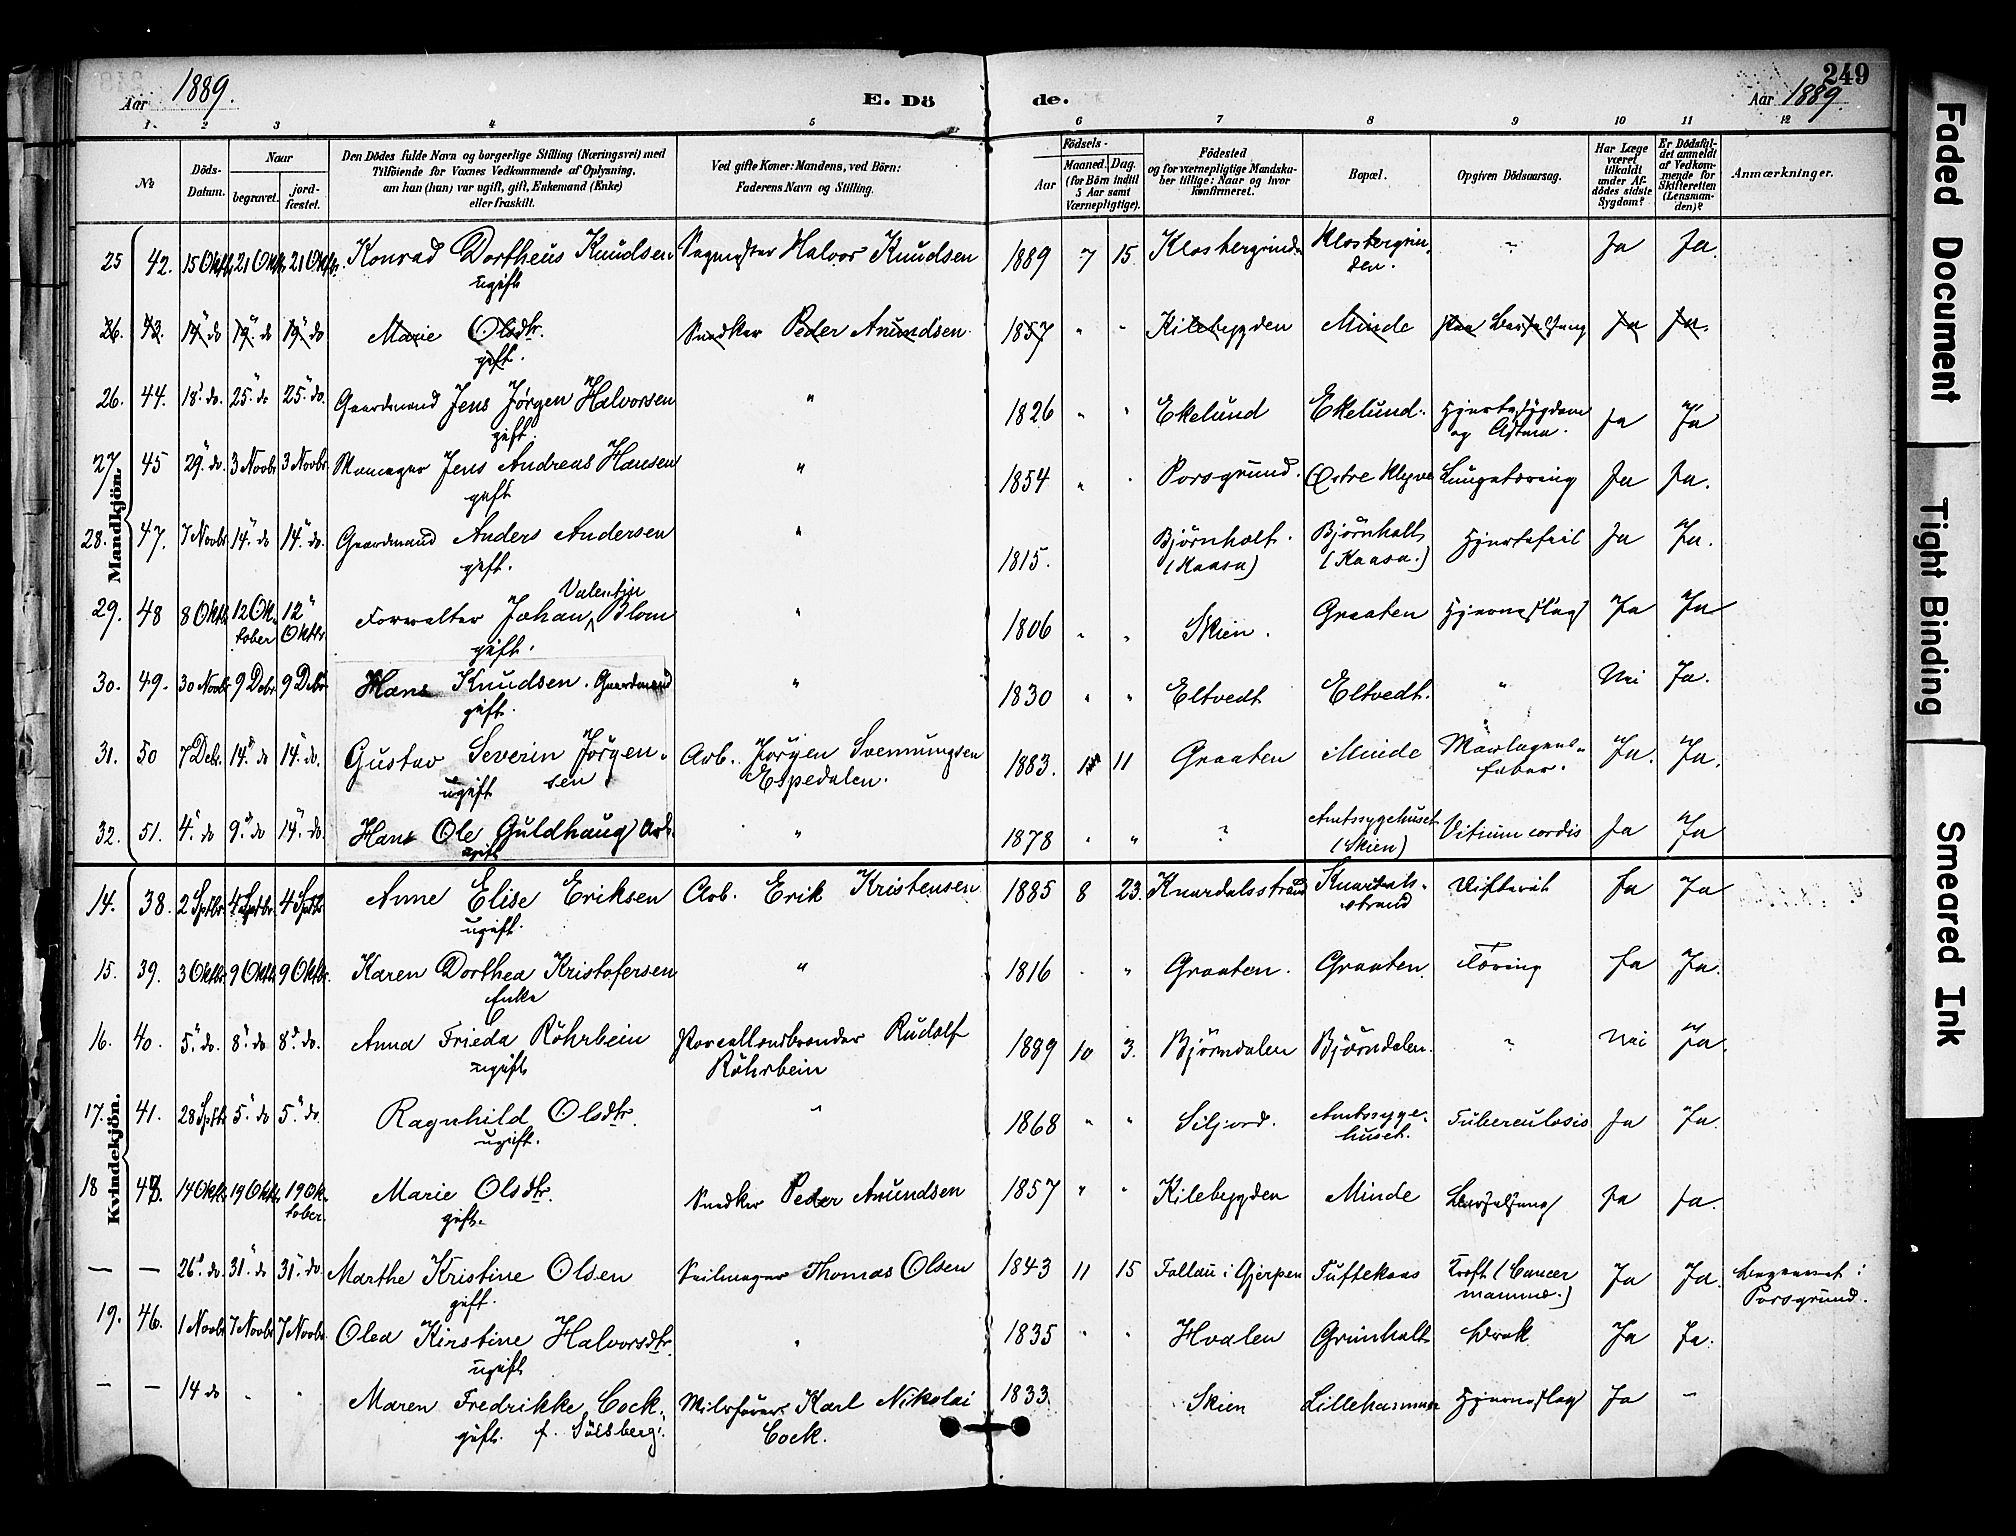 Aar 1889.
E. Dö
de.
249
Aar 1889.
1. 2 3 4 5 6 7 8 9 10 11 12
№
Döds-Datum.
Naar
begravet.
jord-fæstet.
Den Dödes fulde Navn og borgerlige Stilling (Næringsvei) med
Tilföiende for Voxnes Vedkommende af Oplysning,
om han (hun) var ugift, gift, Enkemand (Enke)
eller fraskilt.
Ved gifte Koner: Mandens, ved Börn:
Faderens Navn og Stilling.
Födsels-
Aar
Maaned. Dag.
(for Börn indtil 5 Aar samt Værnepligtige).
Födested
og for værnepligtige Mandska-
ber tillige: Naar og hvor
konfirmeret.
Bopæl.
Opgiven Dödsaarsag.
Har Læge været tilkaldt under Af-dödes sidste Sygdom?
Er Dödsfal-det anmeldt af Vedkom-mende for Skifteretten (Lensman-den)?
Anmærkninger.
Mandkjön.
25 42. 15 Oktb. 21 Oktb. 21 Oktb. Konrad Dortheus Knudsen Sagmester Halvor Knudsen 1889 7 15. Klostergrinden Klostergrin-
ugift den. " Ja Ja.
26. 43. 14" do 19" do 19" do Marie Olsdtr. Snedker Peder Amundsen 1857 " " Kilebygden Minde Barselseng Ja Ja.
gift.
26. 44. 18" do. 25" do 25" do. Gaardmand Jens Jørgen Halvorsen " 1826 " " Ekelund Ekelund. Hjertesygdom Ja Ja
gift. og Astma.
27. 45 29" do. 3 Novbr 3 Novbr. Jens Andreas Hansen " 1854 " " Porsgrund. Østre Klyve Lungetæring Ja Ja.
gift
28. 47. 7 Novbr 14" do 14" do. Gaardmand Anders Andersen " 1815. Bjørnholt. Bjørnholt Hjertefeil Ja Ja.
gift. (Kaasa) (Kaasa.)
Valentin
29. 48 8 Oktb. 12 Ok- 12" Forvalter Johan Blom " 1806 " " Skien. Graaten Hjerneslag Ja Ja
tober Oktbr gift.
30. 49. 30 Novbr 9 Debr 9 Debr Hans Knudsen. Gaardmand " 1830 " " Eltvedt Eltvedt. " Nei Ja.
gift.
31. 50 7 Debr. 14" do 14" do. Gustav Severin Jørgen- Arb. Jørgen Svennungsen 1883. 11 Graaten Minde Ja. Ja.
ugift sen Espedalen.
32. 51. 4" do 9" do 14" do. Hans Ole Guldhaug Arb. " 1878 " " ? Amtssygehuset Vitium cordis Ja Ja
ugift (Skien)
Kvindekjön.
14. 38. 2 Sptbr 4 Sptbr. 4 Sptbr Anne Elise Eriksen Arb. Erik Kristensen 1885 8 23. Knardalsstrand Knardals- Difterit Ja Ja
ugift. strand
15. 39. 3 Oktb. 9 Oktb. 9 Oktb. Karen Dorthea Kristofersen " 1816 " " Graaten. Graaten. Tæring Ja Ja.
Enke
16. 40. 5" do. 8" do 8" do. Anna Frieda Röhrbein Porcellændbrænder Rudolf 1889 10 3. Bjørndalen Bjørndalen. " Nei Ja.
ugift Röhrbein
17. 41. 28 Sptb. 5" do 5" do Ragnhild Olsdtr. " 1868 " " Siljord. Amtssyge- Tuberculosis Ja Ja.
ugift. huset.
18 43. 14 Oktb. 19 Oktb. 19 Ok- Marie Olsdtr. Snedker Peder Amundsen 1857 " " Kilebygden Minde Barselseng Ja Ja.
tober. gift.
— — 26" do. 31" do 31" do. Marthe Kristine Olsen Seilmager Thomas Olsen 1843 11 15 Follau i Gjerpen Tuftekaas Kræft (Cancer Ja Ja. Begravet i
gift. mammæ.) Porsgrund.
19. 46. 1 Novbr 7 Novbr 7 Novbr. Olea Kirstine Halvorsdtr. " 1835 " " Hvalen Grünholt Værk Ja Ja.
ugift
— — 14 do " " Maren Fredrikke Cock. Karl Nikolai 1833. Skien Lillehammer Hjerneslag Ja —
gift. f. Sölsberg. Cock.
Faded Document
Tight Binding
Smeared Ink